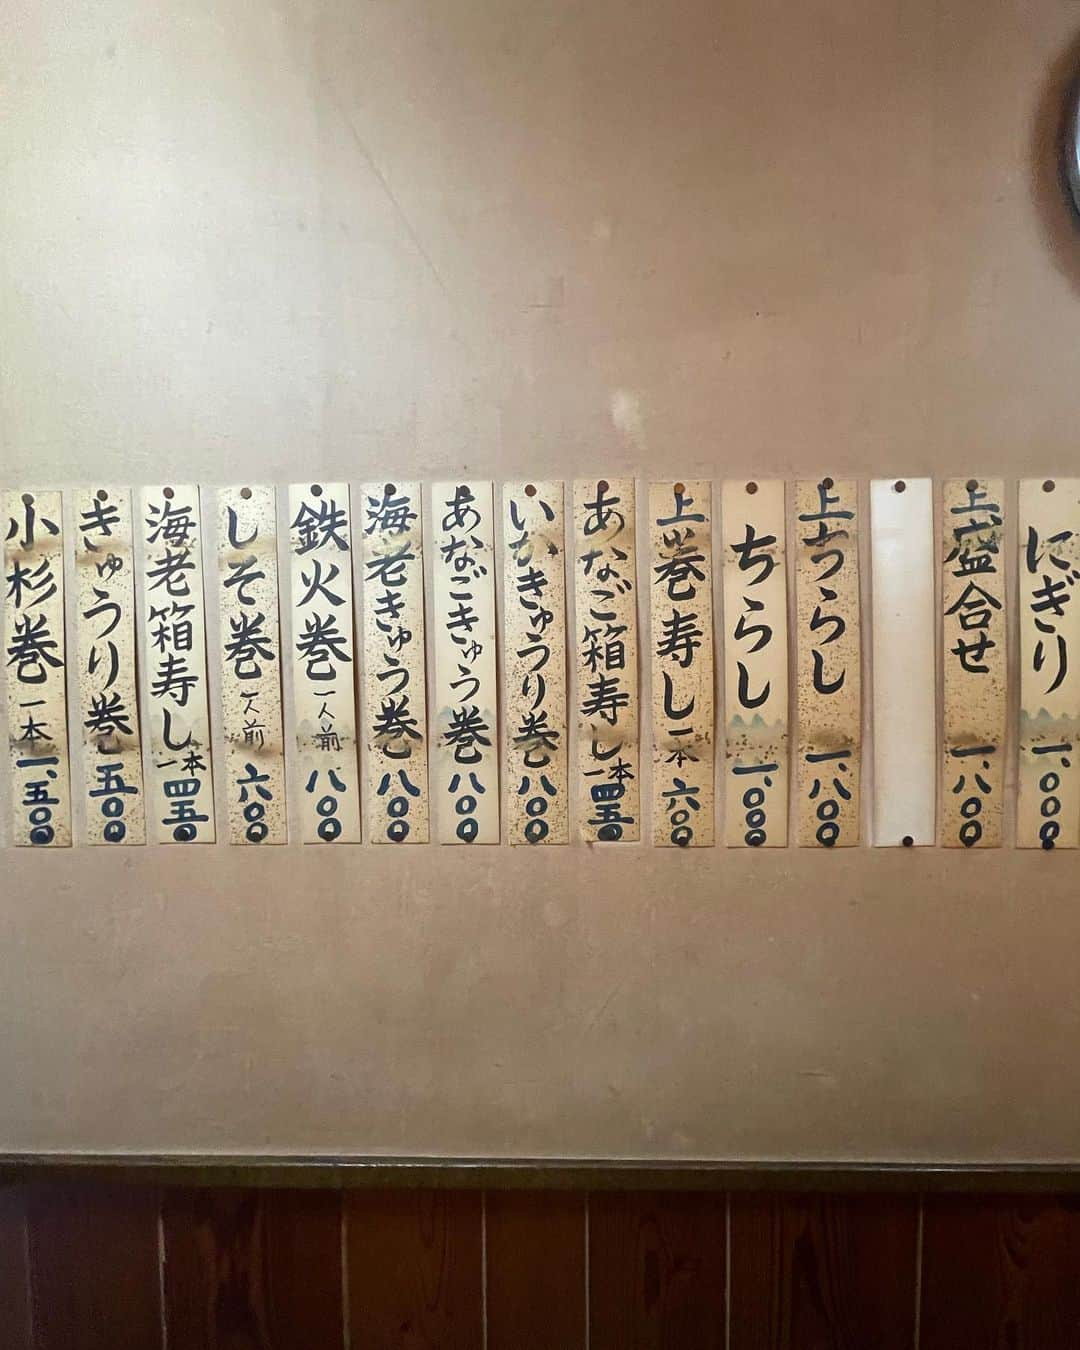 にぎり 一、〇〇〇
上盛合せ 一、八〇〇
上ちらし 一、八〇〇
ちらし 一、〇〇〇
上巻寿し 一本 六〇〇
あなご箱寿し 一本 四五〇
いかきゅうり巻 八〇〇
あなごきゅう巻 八〇〇
海老きゅう巻 八〇〇
鉄火巻 一人前 八〇〇
しそ巻 一人前 六〇〇
海老箱寿し 一本 四五〇
きゅうり巻 五〇〇
小杉巻 一本 一、五〇〇